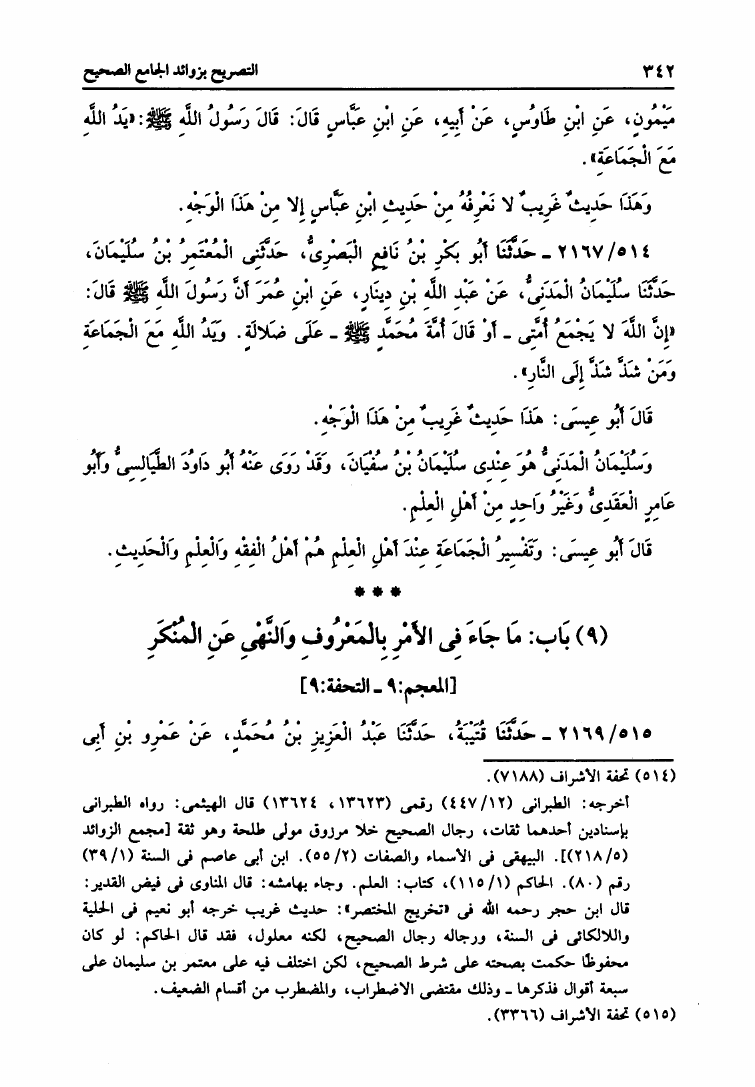 ٣٤٢ التصريح بزوائد الجامع الصحيح
مَيْمُونٍ، عَنِ ابْنِ طَاوُسٍ، عَنْ أَبِيهِ، عَنِ ابْنِ عَبَّاسٍ قَالَ: قَالَ رَسُولُ اللَّهِ ﷺ: «يَدُ اللَّهِ
مَعَ الْجَمَاعَةِ».
وَهَذَا حَدِيثٌ غَرِيبٌ لَا نَعْرِفُهُ مِنْ حَدِيثِ ابْنِ عَبَّاسٍ إِلَا مِنْ هَذَا الْوَجْهِ.
٢١٦٧/٥١٤ ـ حَدَّثَنَا أَبُو بَكْرِ بْنُ نَافِعٍ الْبَصْرِىُّ، حَدَّثَنِى الْمُعْتَمِرُ بْنُ سُلَيْمَانَ،
حَدَّثَنَا سُلَيْمَانُ الْمَدَنِىُّ، عَنْ عَبْدِ اللَّهِ بْنِ دِينَارٍ، عَنِ ابْنِ عُمَرَ أَنَّ رَسُولَ اللَّهِ ﷺ قَالَ:
«إِنَّ اللَّهَ لَا يَجْمَعُ أُمَّتِى ـ أَوْ قَالَ أُمَّةَ مُحَمَّدٍ ﷺ ـ عَلَى ضَلَالَةٍ. وَيَدُ اللَّهِ مَعَ الْجَمَاعَةِ
وَمَنْ شَذَّ شَذَّ إِلَى النَّارِ».
قَالَ أَبُو عِيسَى: هَذَا حَدِيثٌ غَرِيبٌ مِنْ هَذَا الْوَجْهِ.
وَسُلَيْمَانُ الْمَدَنِىُّ هُوَ عِنْدِى سُلَيْمَانُ بْنُ سُفْيَانَ، وَقَدْ رَوَى عَنْهُ أَبُو دَاوُدَ الطَّيَالِسِىُّ وَأَبُو
عَامِرٍ الْعَقَدِىُّ وَغَيْرُ وَاحِدٍ مِنْ أَهْلِ الْعِلْمِ.
قَالَ أَبُو عِيسَى: وَتَفْسِيرُ الْجَمَاعَةِ عِنْدَ أَهْلِ الْعِلْمِ هُمْ أَهْلُ الْفِقْهِ وَالْعِلْمِ وَالْحَدِيثِ.
* * *
(٩) بَاب: مَا جَاءَ فِى الْأَمْرِ بِالْمَعْرُوفِ وَالنَّهْىِ عَنِ الْمُنْكَرِ
[المعجم:٩ ـ التحفة:٩]
٢١٦٩/٥١٥ ـ حَدَّثَنَا قُتَيْبَةُ، حَدَّثَنَا عَبْدُ الْعَزِيزِ بْنُ مُحَمَّدٍ، عَنْ عَمْرِو بْنِ أَبِى
(٥١٤) تحفة الأشراف (٧١٨٨).
أخرجه: الطبرانى (٤٤٧/١٢) رقمى (١٣٦٢٣، ١٣٦٢٤) قال الهيثمى: رواه الطبرانى
بإسنادين أحدهما ثقات، رجال الصحيح خلا مرزوق مولى طلحة وهو ثقة [مجمع الزوائد
(٢١٨/٥)]. البيهقى فى الأسماء والصفات (٥٥/٢). ابن أبى عاصم فى السنة (٣٩/١)
رقم (٨٠). الحاكم (١١٥/١)، كتاب: العلم. وجاء بهامشه: قال المناوى فى فيض القدير:
قال ابن حجر رحمه الله فى «تخريج المختصر»: حديث غريب خرجه أبو نعيم فى الحلية
واللالكائى فى السنة، ورجاله رجال الصحيح، لكنه معلول، فقد قال الحاكم: لو كان
محفوظًا حكمت بصحته على شرط الصحيح، لكن اختلف فيه على معتمر بن سليمان على
سبعة أقوال فذكرها ـ وذلك مقتضى الاضطراب، والمضطرب من أقسام الضعيف.
(٥١٥) تحفة الأشراف (٣٣٦٦).